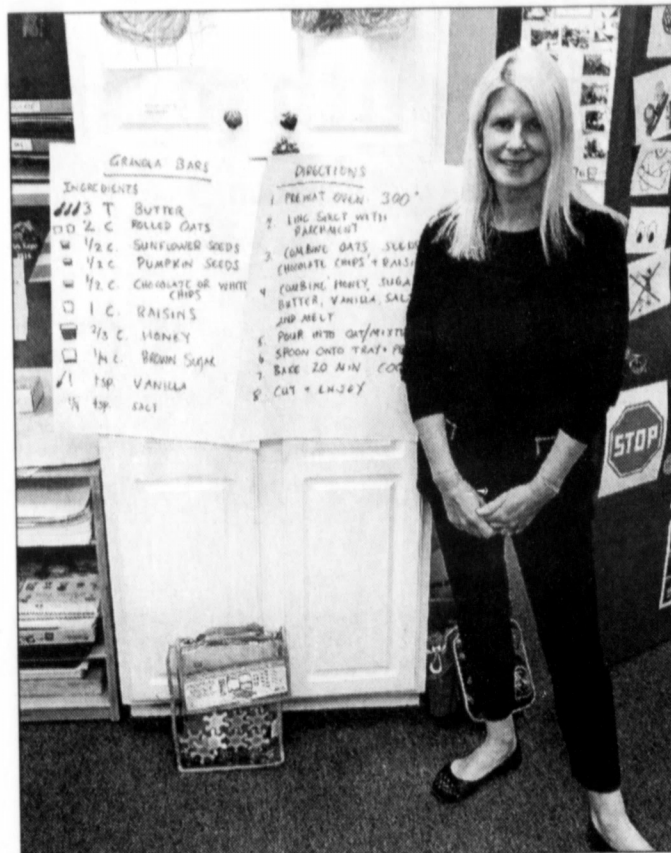 GRANOLA BARS
INGREDIENTS
3 T BUTTER
2 C ROLLED OATS
1/2 C. SUNFLOWER SEEDS
1/2 C. PUMPKIN SEEDS
1/2 C. CHOCOLATE OR WHITE
CHIPS
1 C. RAISINS
2/3 C. HONEY
1/4 C. BROWN SUGAR
1 tsp. VANILLA
tsp. SALT
DIRECTIONS
1. PREHEAT OVEN 300°
2. LINE SHEET WITH
PARCHMENT
3. COMBINE OATS, SEEDS
CHOCOLATE CHIPS + RAISIN
4 COMBINE HONEY, SUGA
BUTTER, VANILLA, SALT
AND MELT
5 POUR INTO OAT/MIXTU
6 SPOON ONTO TRAY + PR
7. BAKE 20 MIN COO
8. CUT + ENJOY
STOP